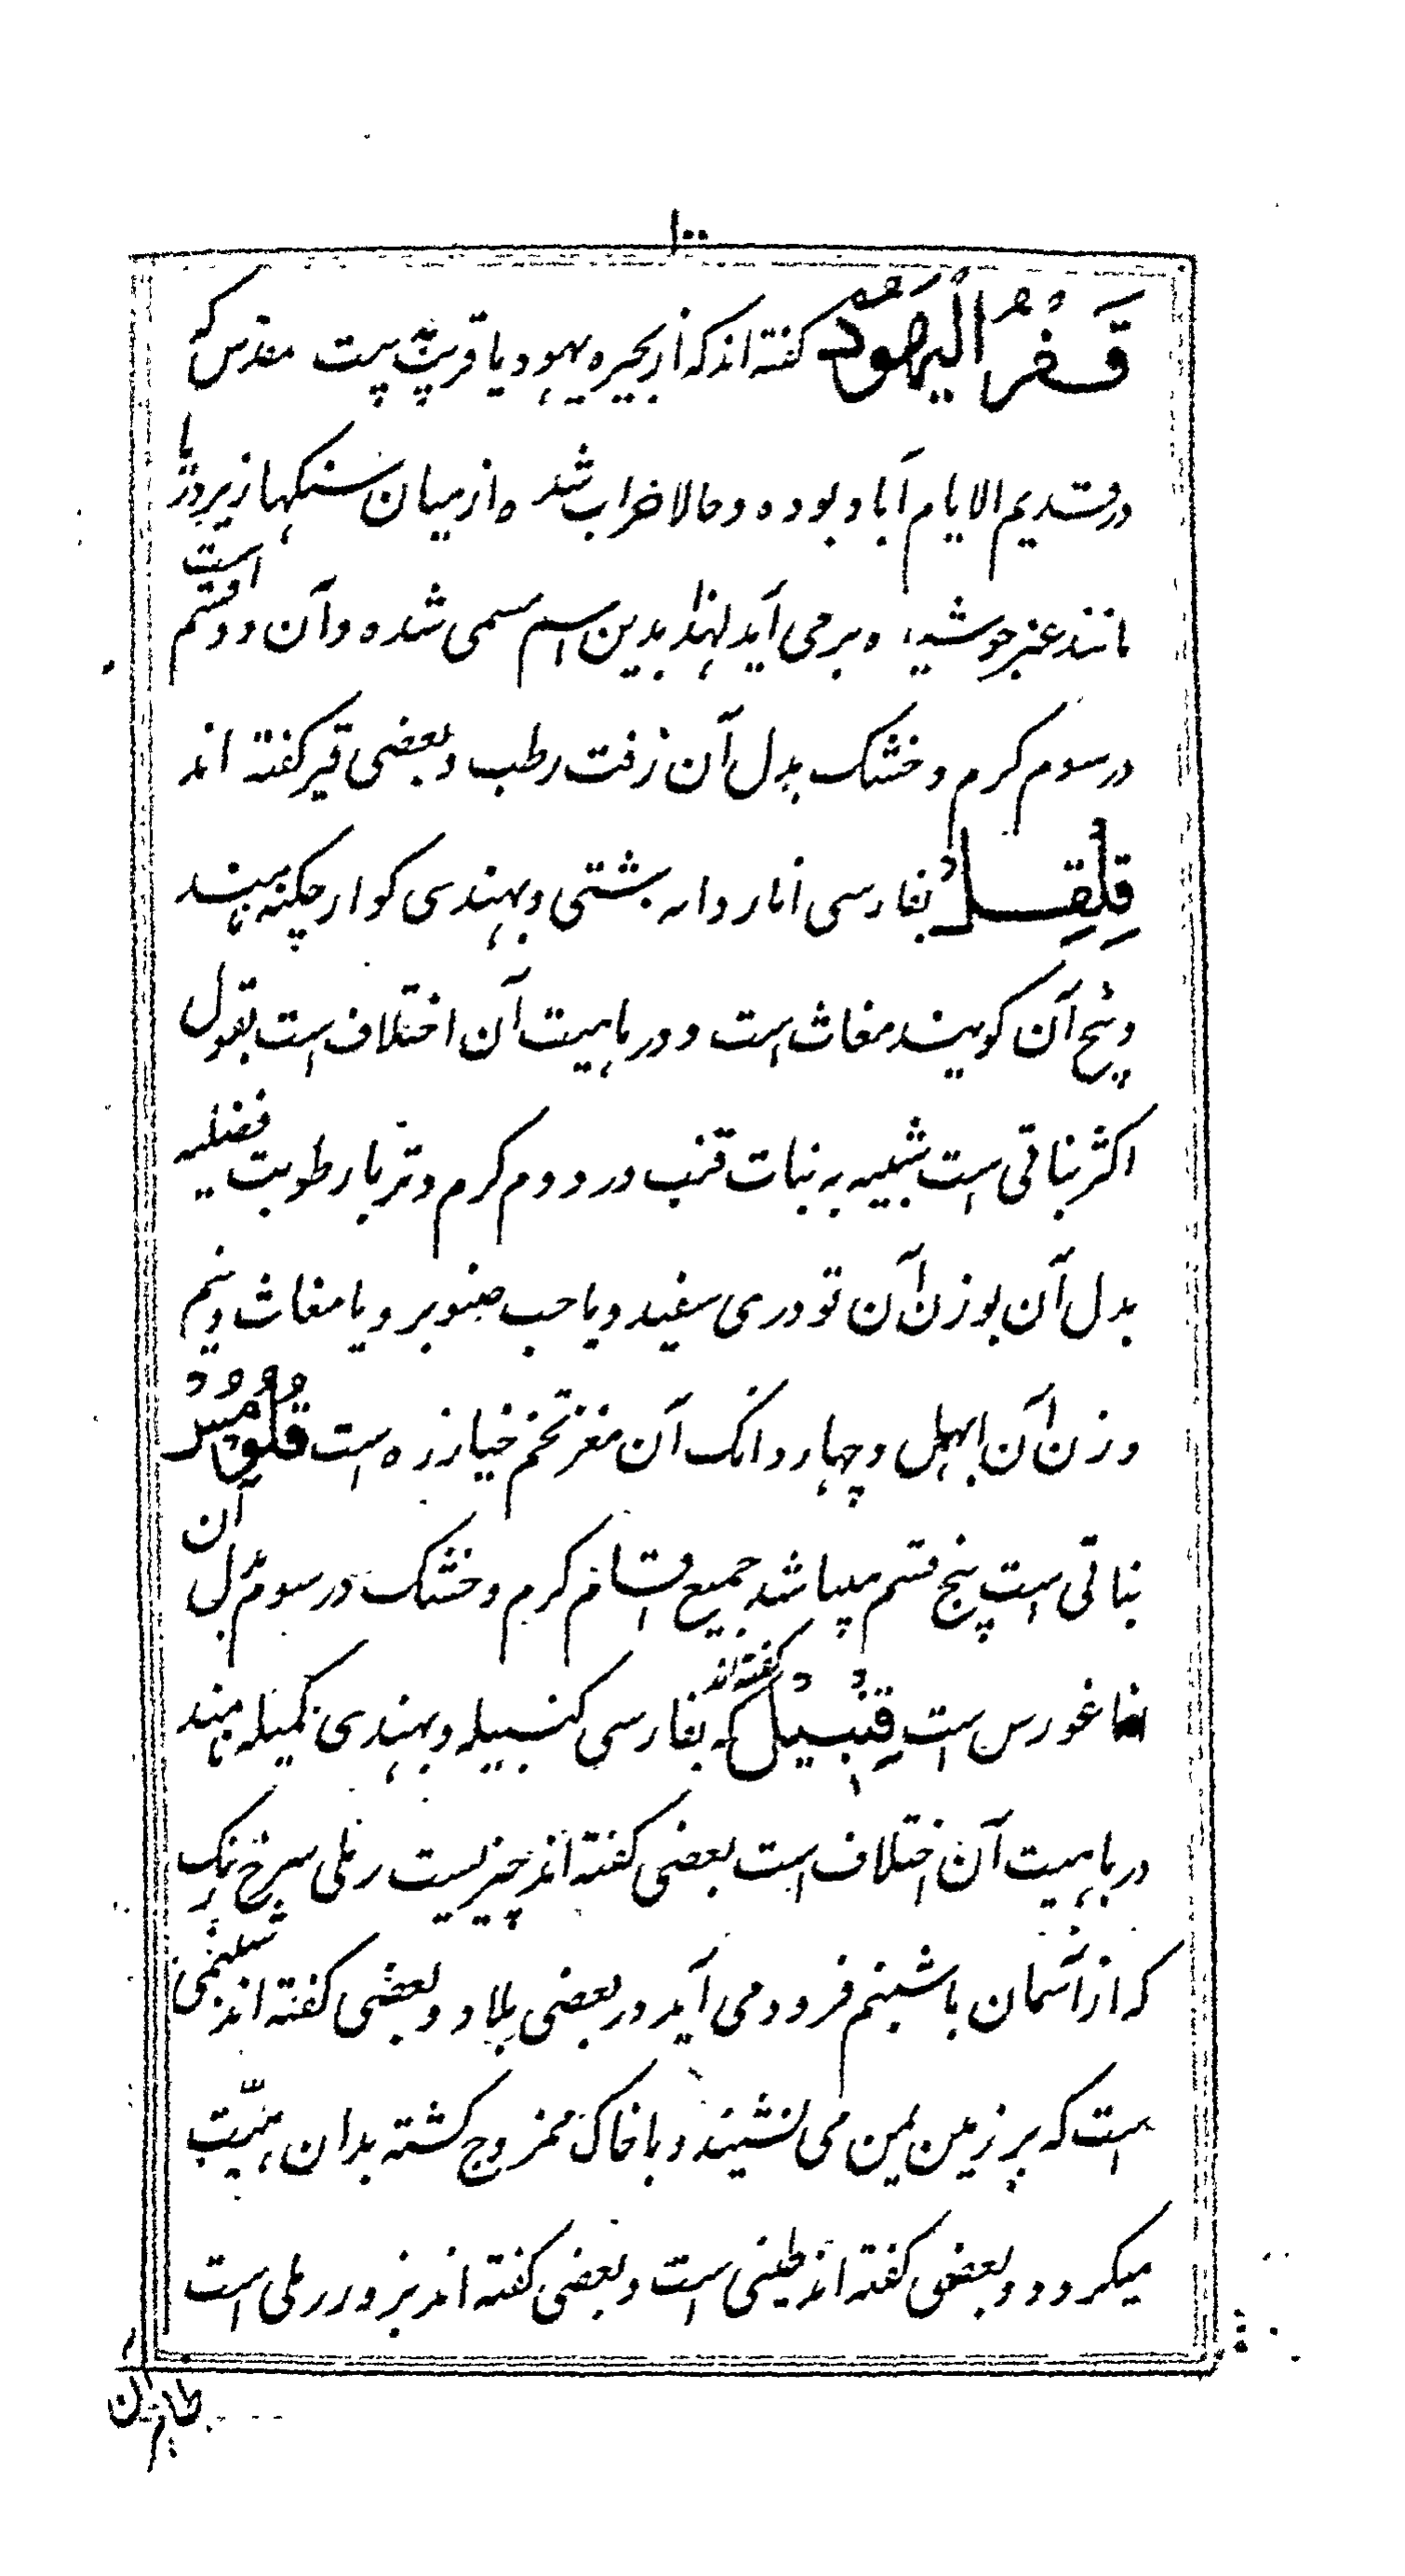 ۱۰۰
قَفْرُ الْیَهُوْد گفته اند که از بحیره یهود یا قریت بیت مقدس که
در قدیم الایام آباد بوده و حالا خراب شده از میان سنکها زیر دریا
مانند عنبر جوشیده برمی آید لهذا بدین اسم مسمی شده و آن دو قسم است
در سوم کرم و خشک بدل آن زفت رطب و بعضی قیر کفته اند
قِلْقِل بفارسی انار دانه دشتی و بهندی کوار چکنه نامند
و بیخ آن کویند مغاث است و در ماهیت آن اختلاف است بقول
اکثر نباتی است شبیه به نبات قنب در دوم کرم و تر با رطوبت فضلیه
بدل آن بوزن آن تودری سفید و یا حب صنوبر و یا مغاث و نیم
وزن آن ابهل و چهار دانک آن مغز تخم خیارزه است قُلُوْمُس
نباتی است پنج قسم میباشد جمیع اقسام کرم و خشک در سوم بدل آن
فاغورس است قِنْبِیْل گفته اند که بفارسی کنبیله و بهندی کمیله نامند
در ماهیت آن اختلاف است بعضی کفته اند چیزیست رملی سرخ رنک
که از آسمان با شبنم فرود می آید در بعضی بلاد و بعضی کفته اند شبنمی
است که بر زمین یمن می نشیند و با خاک ممزوج کشته بدان هیئت
میکردد و بعضی کفته اند طینی است و بعضی کفته اند بزور رملی است